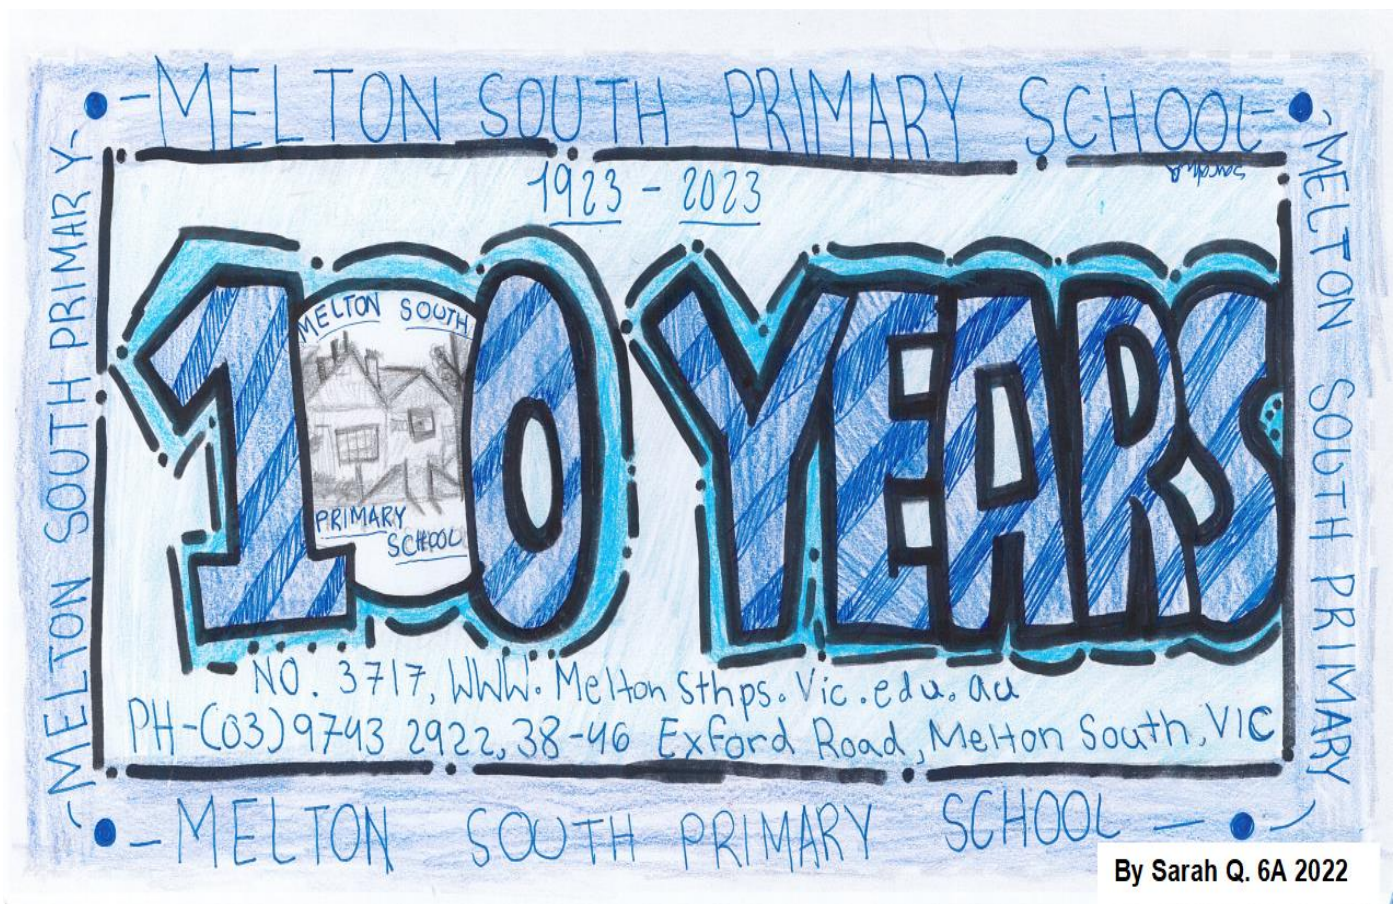 MELTON SOUTH PRIMARY SCHOOL
Sarah Q
1923 - 2023
100 YEARS
MELTON SOUTH
PRIMARY
SCHOOL
NO. 3717, WWW. Melton Sthps. Vic. edu. au
PH-(03)9743 2922, 38-46 Exford Road, Melton South, VIC
MELTON SOUTH PRIMARY
MELTON SOUTH PRIMARY
MELTON SOUTH PRIMARY SCHOOL
By Sarah Q. 6A 2022